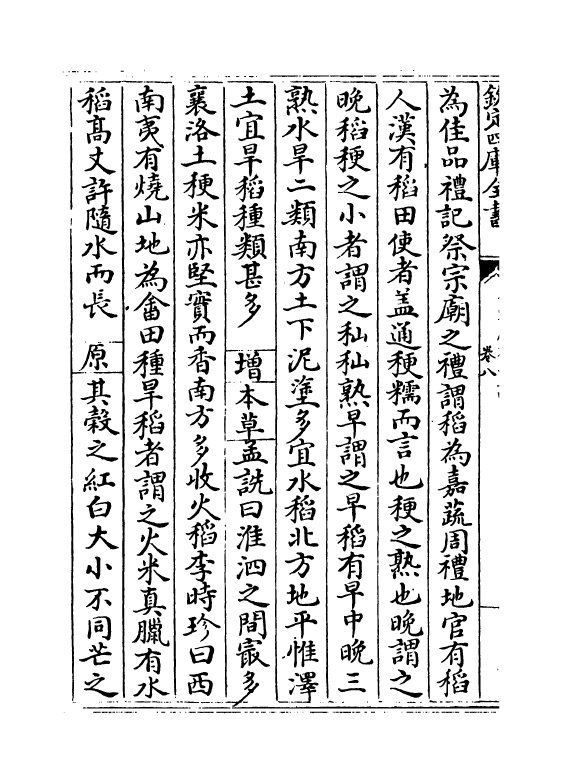 欽定四庫全書
卷八
為佳品禮記祭宗廟之禮謂稻為嘉蔬周禮地官有稻
人漢有稻田使者盖通稉糯而言也稉之熟也晚謂之
晚稻稉之小者謂之秈秈熟早謂之早稻有早中晚三
熟水旱二類南方土下泥塗多宜水稻北方地平惟澤
土宜旱稻種類甚多 增本草孟詵曰淮泗之間㝡多
襄洛土稉米亦堅實而香南方多收火稻李時珍曰西
南夷有燒山地為畬田種旱稻者謂之火米真臘有水
稻髙丈許隨水而長 原其榖之紅白大小不同芒之